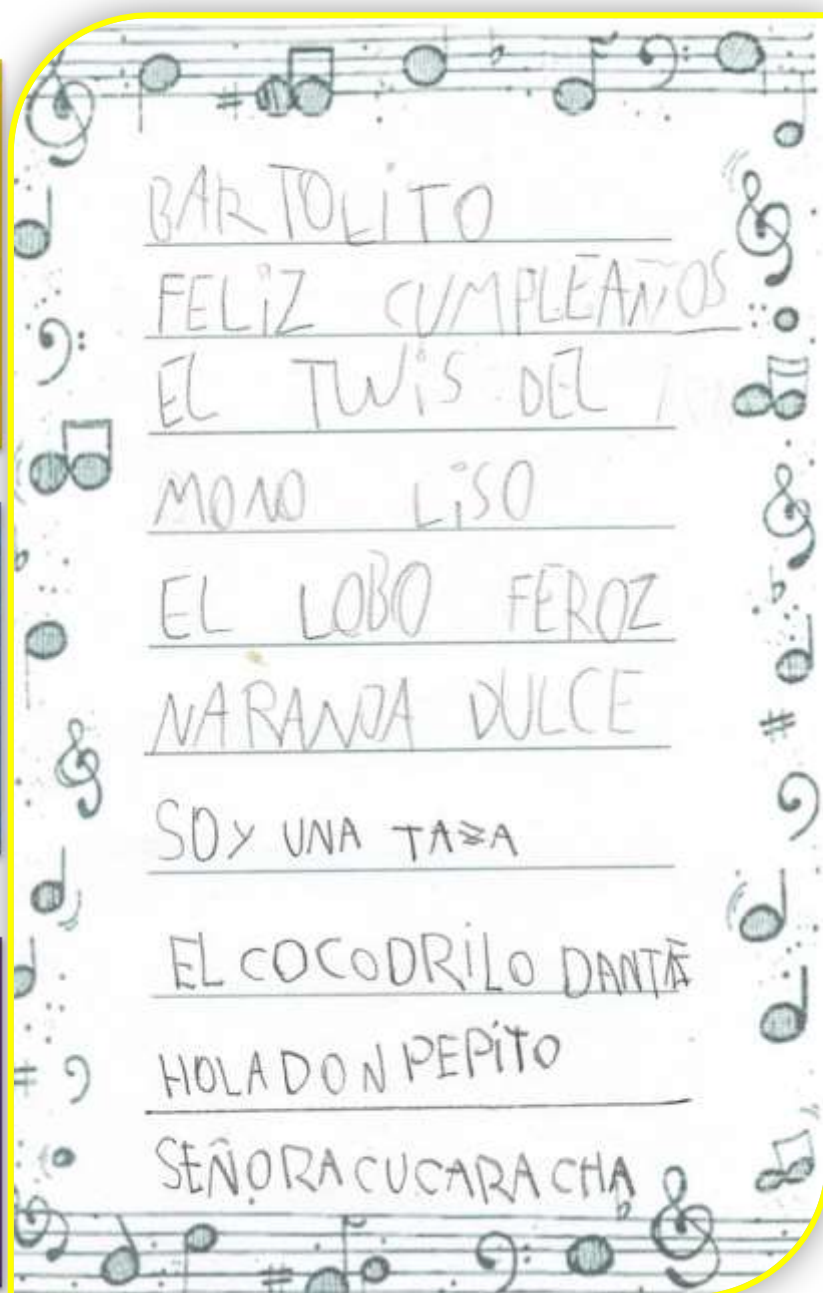 BARTOLITO
FELIZ CUMPLEAÑOS
EL TWIS DEL
MONO LISO
EL LOBO FEROZ
NARANJA DULCE
SOY UNA TAZA
EL COCODRILO DANTE
HOLA DON PEPITO
SEÑORA CUCARACHA